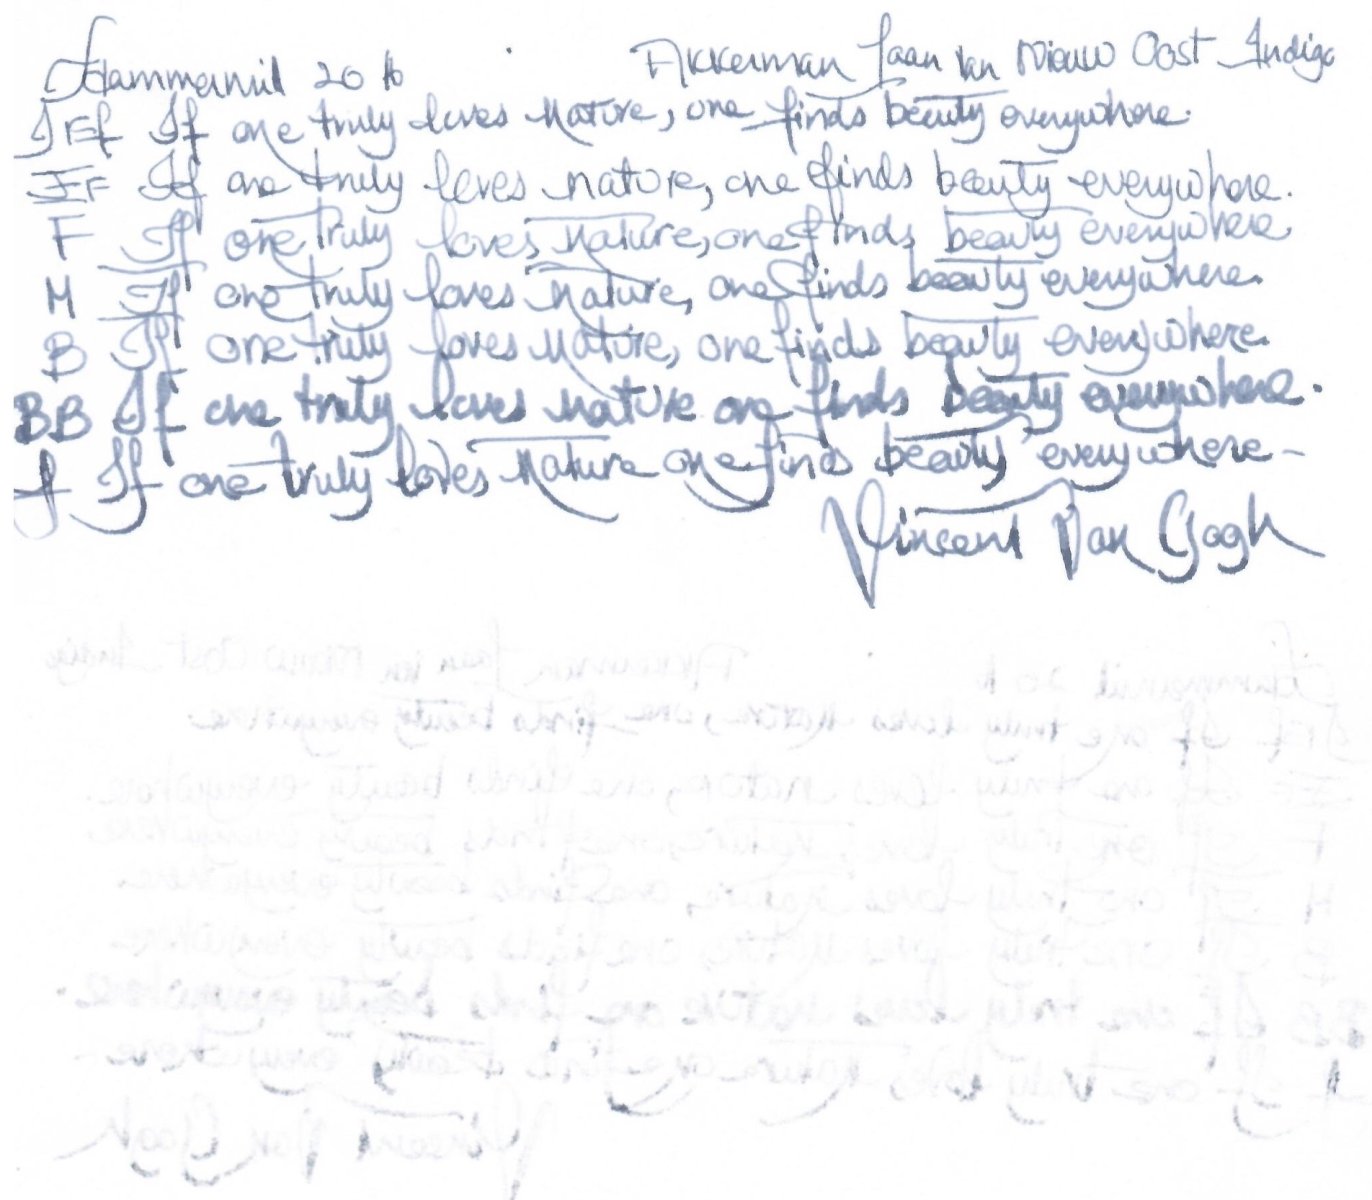 Hammermill 20 lb Akkerman Laan van Nieuw Oost Indigo
JEF If one truly loves nature, one finds beauty everywhere.
EF If one truly loves nature, one finds beauty everywhere.
F If one truly loves nature, one finds beauty everywhere
M If one truly loves nature, one finds beauty everywhere.
B If one truly loves nature, one finds beauty everywhere.
BB If one truly loves nature one finds beauty everywhere.
If one truly loves nature one finds beauty everywhere -
Vincent Van Gogh